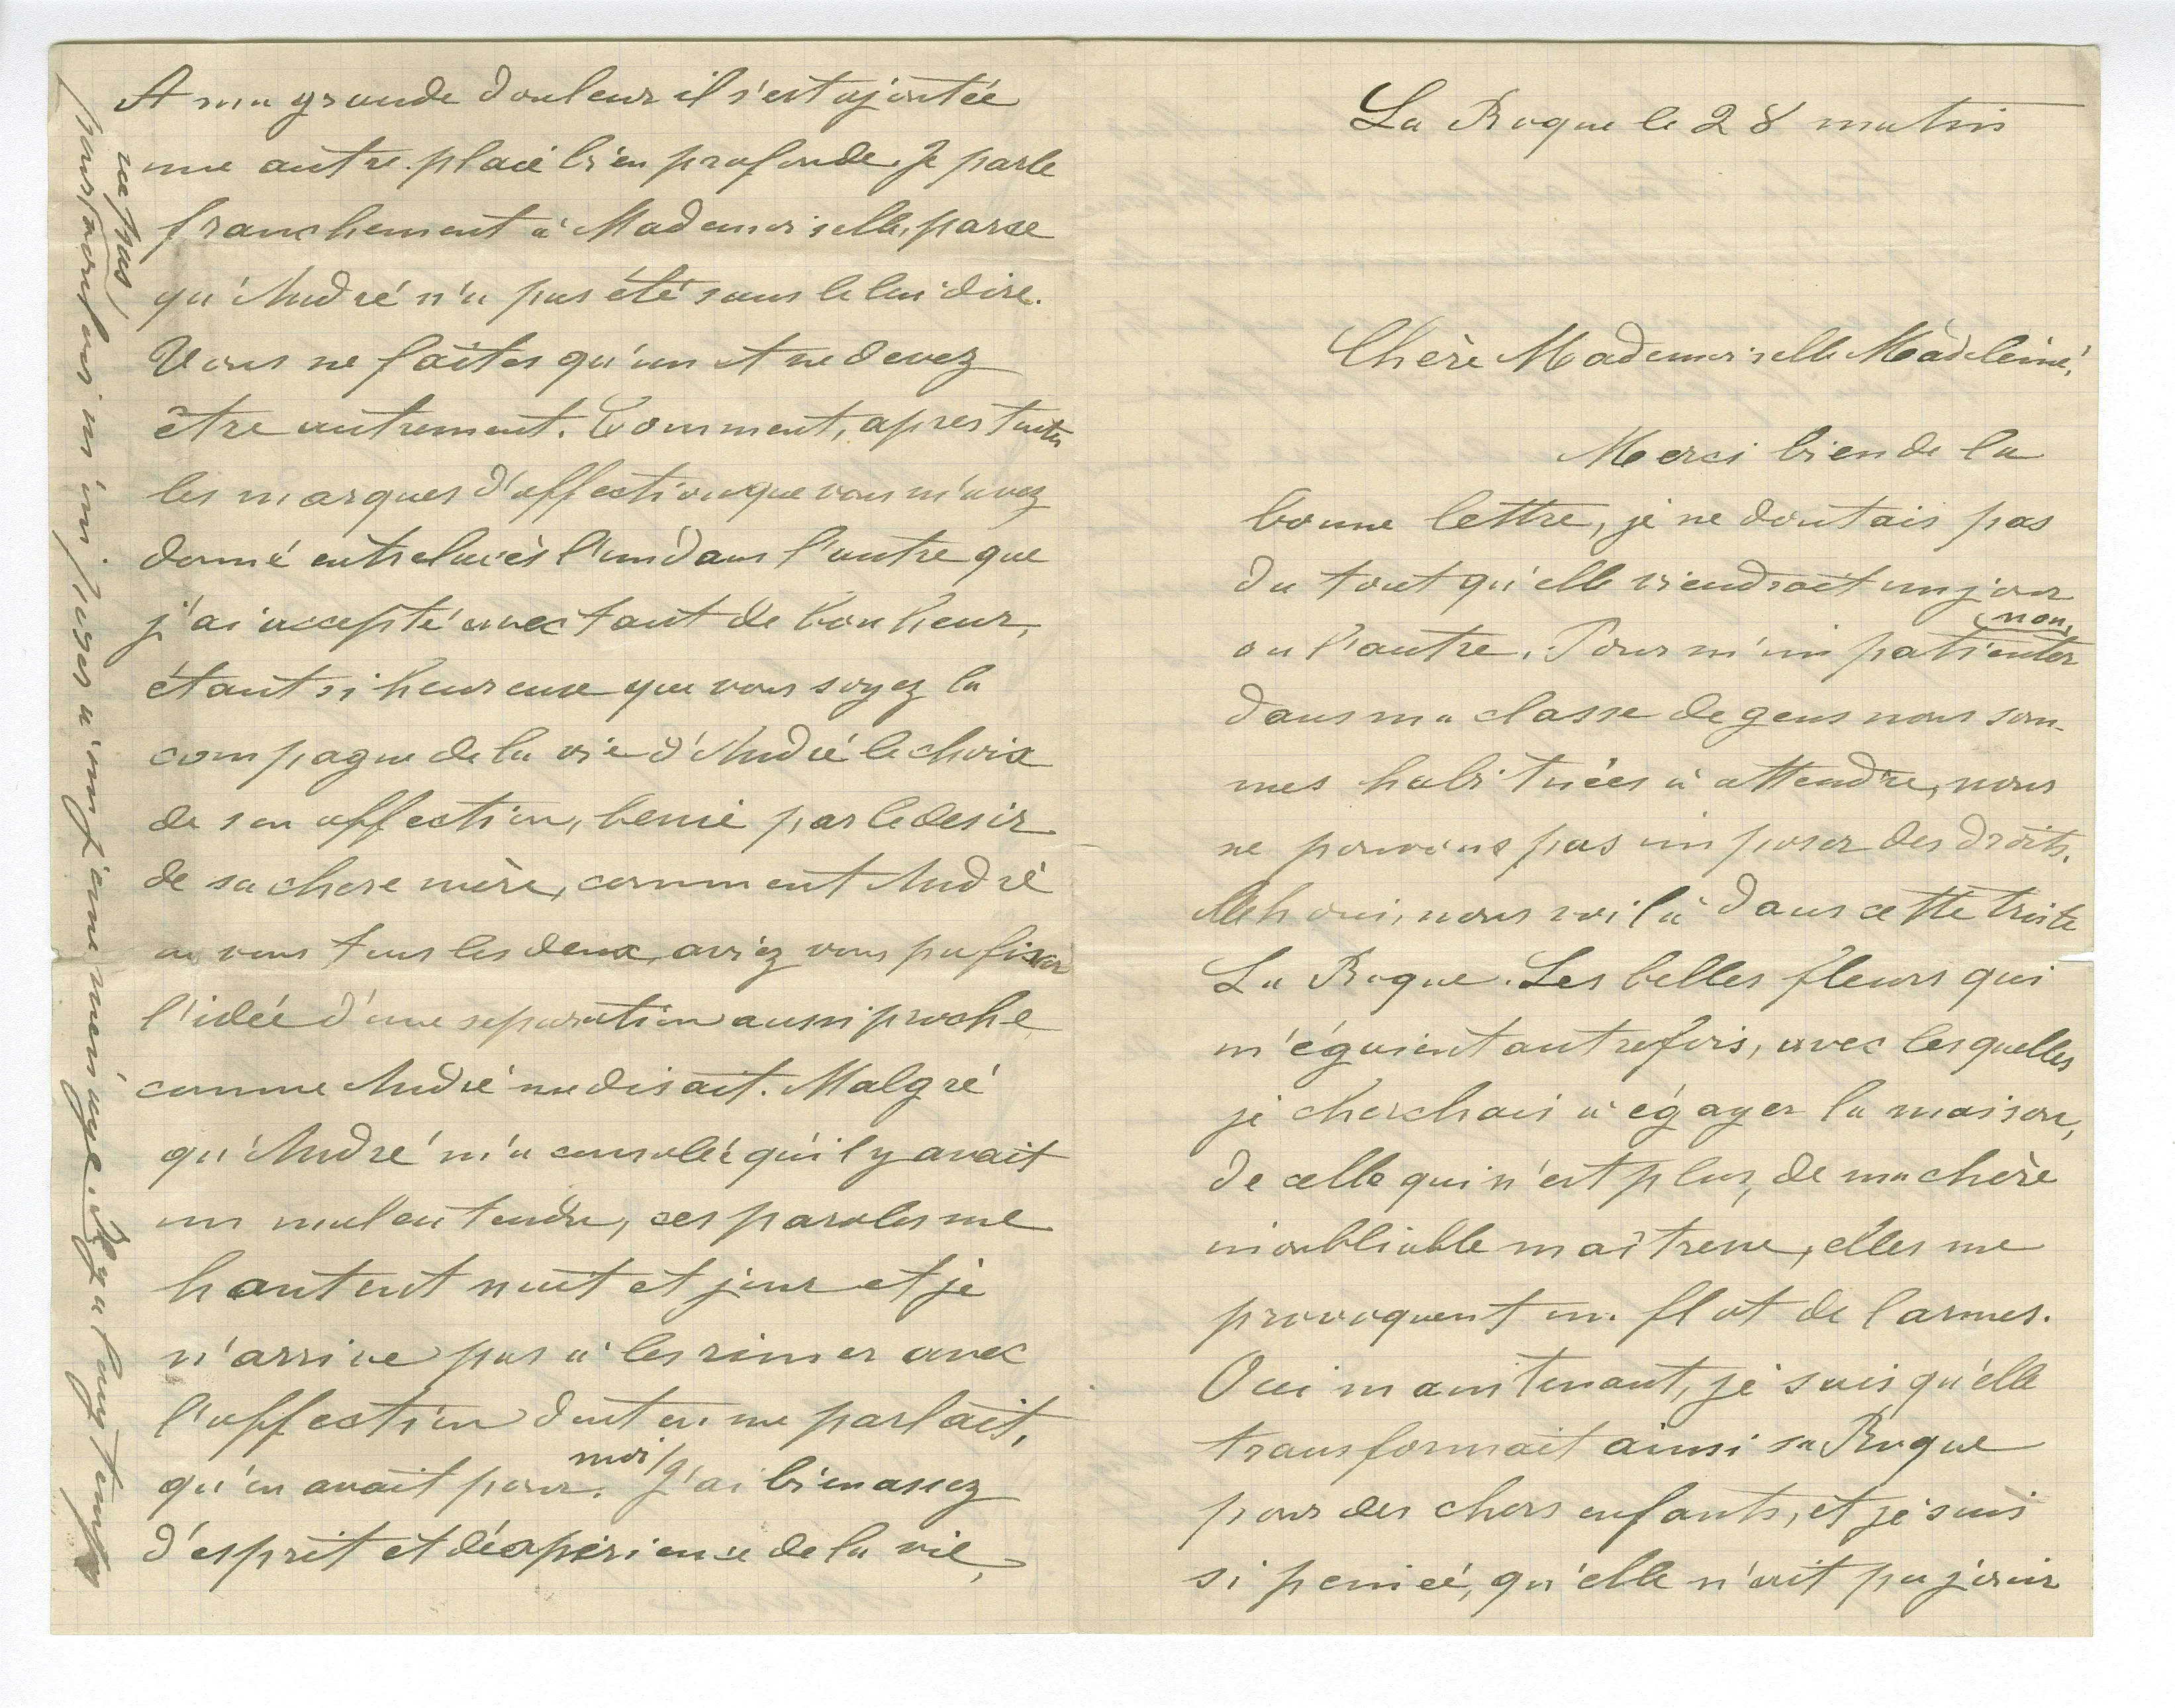 La Roque le 28 matin
Chère Mademoiselle Madeleine,
Merci bien de la
bonne lettre, je ne doutais pas
du tout qu'elle viendrait un jour
ou l'autre. Pour m'impatienter non,
dans ma classe de gens nous som-
mes habituées à attendre, nous
ne pouvons pas imposer des droits.
Ah oui, nous voilà dans cette triste
La Roque. Les belles fleurs qui
m'égaient autrefois, avec lesquelles
je cherchais à égayer la maison,
de celle qui n'est plus, de ma chère
inoubliable maîtresse, elles me
provoquent un flot de larmes.
Oui maintenant, je sais qu'elle
transformait ainsi sa Roque
pour des chers enfants, et je suis
si peniée, qu'elle n'ait pu jouir
A ma grande douleur il s'est ajoutée
une autre plaie bien profonde. Je parle
franchement à Mademoiselle, parse
qu'André n'a pas été sans le lui dire.
Vous ne faites qu'un et ne devez
être autrement. Comment, apres toutes
les marques d'affection que vous m'avez
donné entrelacés l'un dans l'autre que
j'ai accepté avec tant de bonheur,
étant si heureuse que vous soyez la
compagne de la vie d'André le choix
de son affection, benie par le desir
de sa chere mère, comment André
ou vous tous les deux, aviez vous pu fixer
l'idée d'une separation aussi proche
comme André me disait. Malgré
qu'André m'a consolée qu'il y avait
un malentendu, ces paroles me
hantent nuit et jour et je
n'arrive pas à les rimer avec
l'affection dont on me parlait,
qu'on avait pour moi. J'ai bien assez
d'esprit et d'éxperience de la vie,
pour vouloir m'imposer à un jeune menage. Il y a longtemps